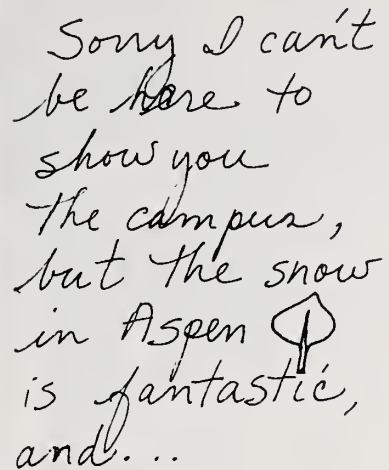 Sorry I can't
be here to
show you
the campus,
but the snow
in Aspen
is fantastic,
and...